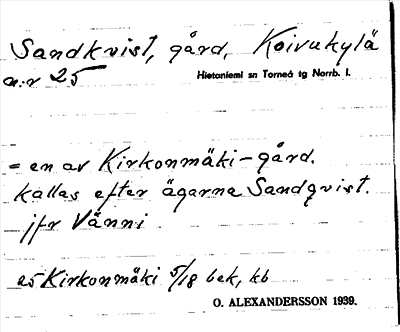 Sandkvist, gård, Koivukylä
n:r 25
Hietaniemi sn Torneå tg Norrb. l.
= en av Kirkonmäki-gård.
kallas efter ägarna Sandqvist.
jfr Vänni
25 Kirkonmäki 5/18 bek, kb
O. ALEXANDERSSON 1939.